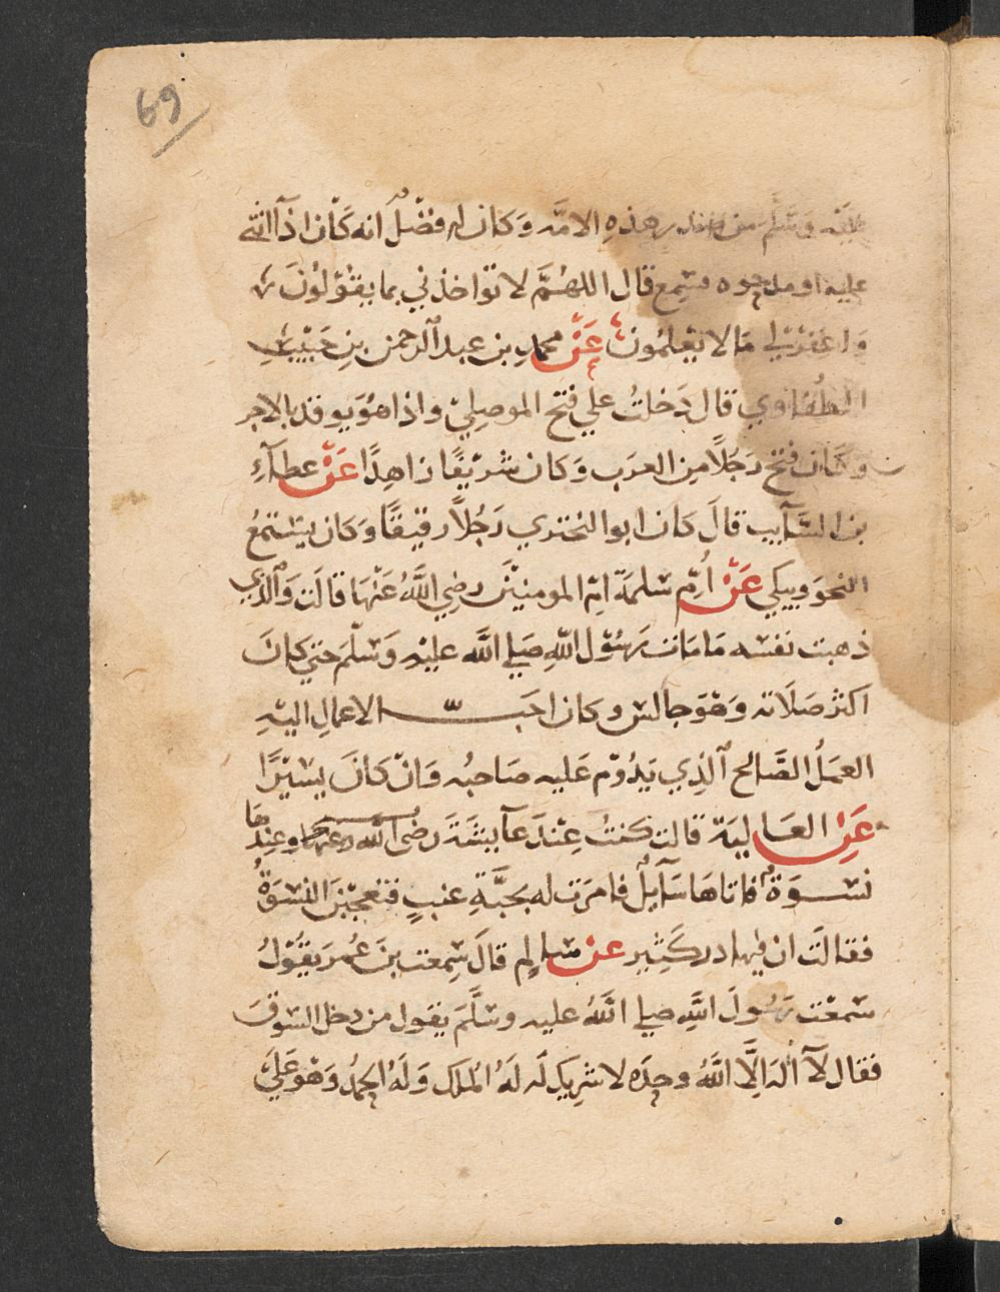 69
عليه وسلم من هذه الامة وكان له فضل انه كان اذا اثني
عليه او مدحوه فسمع قال اللهم لا تواخذني بما يقولون
واغفر لي مالا يعلمون عن محمد بن عبد الرحمن بن حبيب
الطفاوي قال دخلت علي فتح الموصلي واذا هو يوقد بالاجر
وكان فتح رجلا من العرب وكان شريفا زاهدا عن عطآء
بن السآيب قال كان ابو البختري رجلا رقيقا وكان يستمع
النحو ويبكي عن ام سلمة ام المومنين رضي الله عنها قالت والذي
ذهبت نفسه ما مات رسول الله صلي الله عليه وسلم حتي كان
اكثر صلاته وهو جالس وكان احب الاعمال اليه
العمل الصالح الذي يدوم عليه صاحبه وان كان يسيرا
عن العالية قالت كنت عند عآيشة رضى الله عنها وعندها
نسوة فاتاها سآيل فامرت له بحبة عنب فتعجبن النسوة
فقالت ان فيها در كثير عن سالم قال سمعت بن عمر يقول
سمعت رسول الله صلي الله عليه وسلم يقول من دخل السوق
فقال لآ اله الا الله وحده لا شريك له له الملك وله الحمد وهو علي